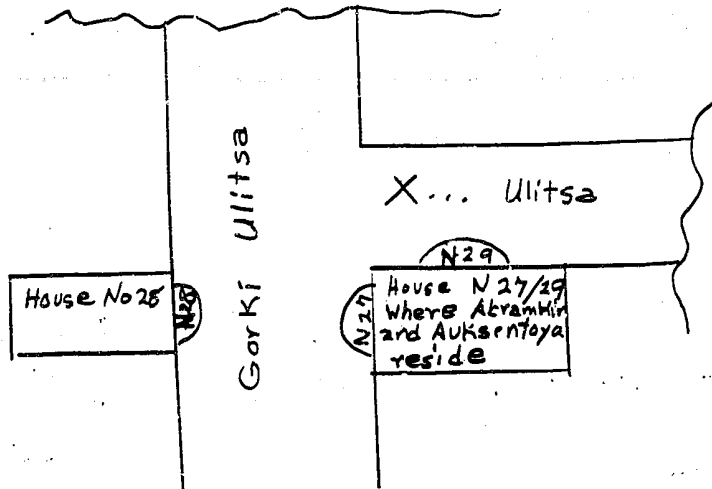 Gorki Ulitsa
X... Ulitsa
N29
House No 28
N28
N27
House N 27/29
Where Akramkin
and Auksentoya
reside